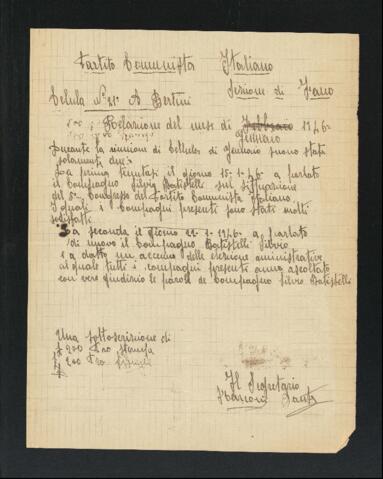 Partito Comunista Italiano
Sezione di Fano
Celula N° 21 A Bertini
Relazione del mese di Febbraio 1946
Gennaio
Durante la riunioni di cellula di Gennaio suono stati
solamenti due:
La prima tenutasi il giorno 15-1-46 a parlato
il Compagno Silvio Batistelli sul situazione
del 5° Congresso del Partito Comunista Italiano
i quali i Compagni presenti sono stati molti
sodisfatti
La seconda il giorno 22-1-1946 a parlato
di nuovo il Compagno Batistelli Silvio
e a datto un accenno delle elezione aministrative
al quale tutti i compagni presenti anno ascoltato
con vero giudizio le parole de Compagno Silvio Batistelli
Una sottoscrizione di
£ 200 Pro stampa
£ 200 Pro
Il Segretario